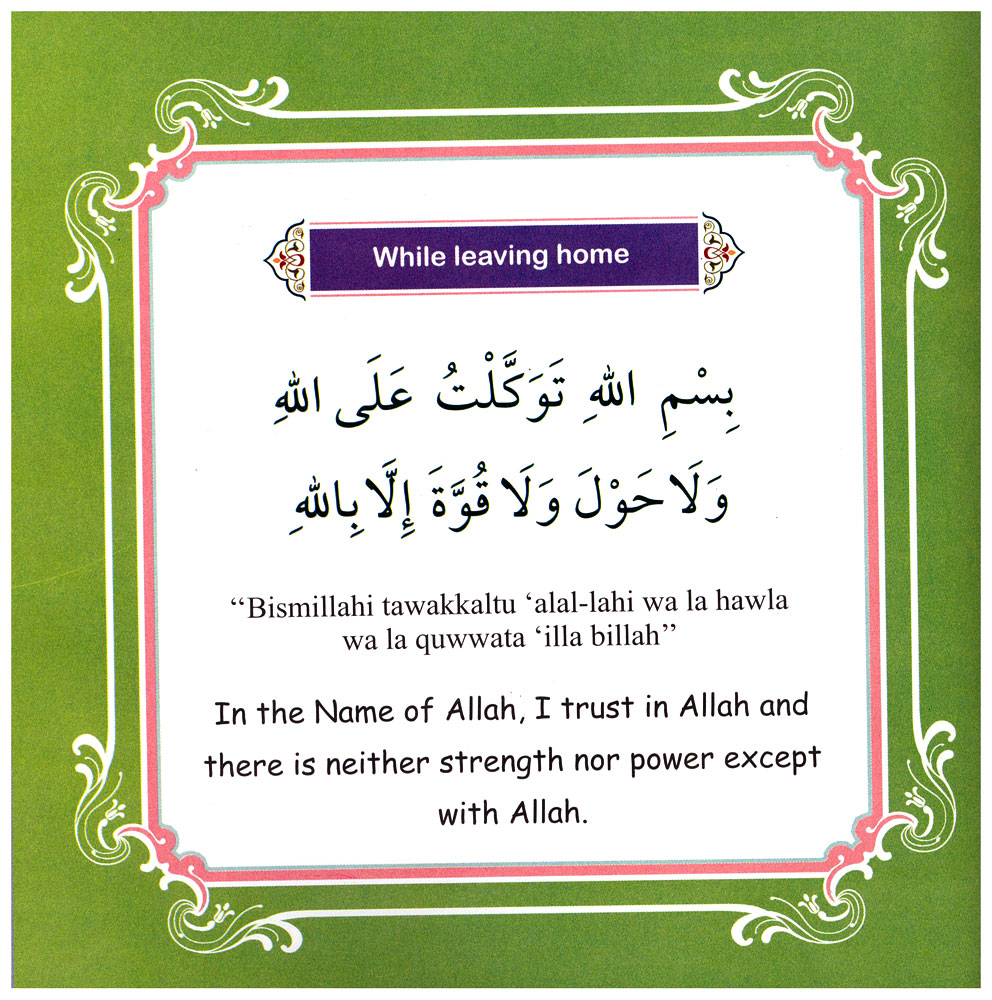 While leaving home
بِسْمِ اللهِ تَوَكَّلْتُ عَلَى اللهِ
وَلَا حَوْلَ وَلَا قُوَّةَ إِلَّا بِاللهِ
“Bismillahi tawakkaltu ‘alal-lahi wa la hawla
wa la quwwata ‘illa billah”
In the Name of Allah, I trust in Allah and
there is neither strength nor power except
with Allah.